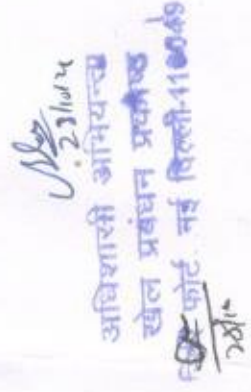 23/10/24
अधिशासी अभियन्ता
खेल प्रबंधन प्रकोष्ठ
फोर्ट नई दिल्ली-110049